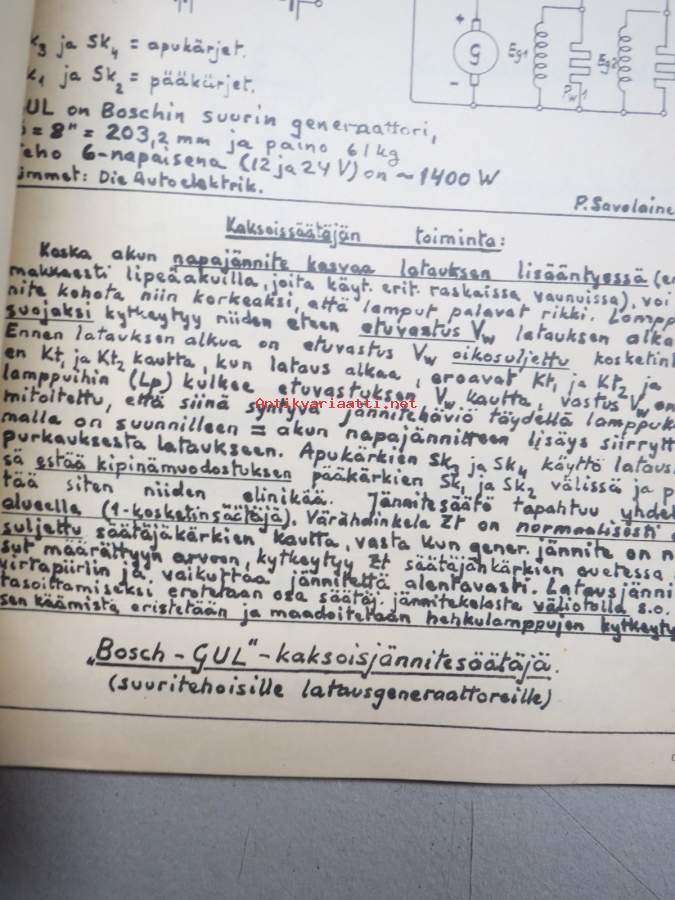 +
G
-
Eg1
Pw1
Eg2
k3 ja Sk4 = apukärjet.
k1 ja Sk2 = pääkärjet.
GUL on Boschin suurin generaattori,
= 8" = 203,2 mm ja paino 61 kg
teho 6-napaisena (12 ja 24 V) on ~1400 W
Die Autoelektrik.
P. Savolaine
Kaksoissäätäjän toiminta:
Koska akun napajännite kasvaa latauksen lisääntyessä (er
makkaasti lipeäakuilla, joita käyt. erit. raskaissa vaunuissa), voi
nite kohota niin korkeaksi, että lamput palavat rikki. Lampp
suojaksi kytkeytyy niiden eteen etuvastus Vw latauksen alka
Ennen latauksen alkua on etuvastus Vw oikosuljettu kosketink
en Kt1 ja Kt2 kautta, kun lataus alkaa, eroavat Kt1 ja Kt2 ja
lamppuihin (Lp) kulkee etuvastuksen Vw kautta, vastus Vw on
mitoitettu, että siinä syntyvä jännitehäviö täydellä lamppuk
malla on suunnilleen = akun napajännitteen lisäys siirrytt
purkauksesta lataukseen. Apukärkien Sk3 ja Sk4 käyttö lataus
sä estää kipinämuodostuksen pääkärkien Sk1 ja Sk2 välissä ja p
tää siten niiden elinikää. Jännitesäätö tapahtuu yhdel
alueella (1-kosketinsäätäjä). Värähdinkela Zt on normaalisesti
suljettu säätäjäkärkien kautta, vasta kun gener. jännite on n
syt määrättyyn arvoon, kytkeytyy Zt säätäjänkärkien auetessa
virtapiiriin ja vaikuttaa jännitettä alentavasti. Latausjänni
tasoittamiseksi erotetaan osa säätäj. jännitekelasta väliotolla s.o.
sen käämistä eristetään ja maadoitetaan hehkulamppujen kytkeyty
„Bosch - GUL"-kaksoisjännitesäätäjä.
(suuritehoisille latausgeneraattoreille)
Antikvariaatti.net